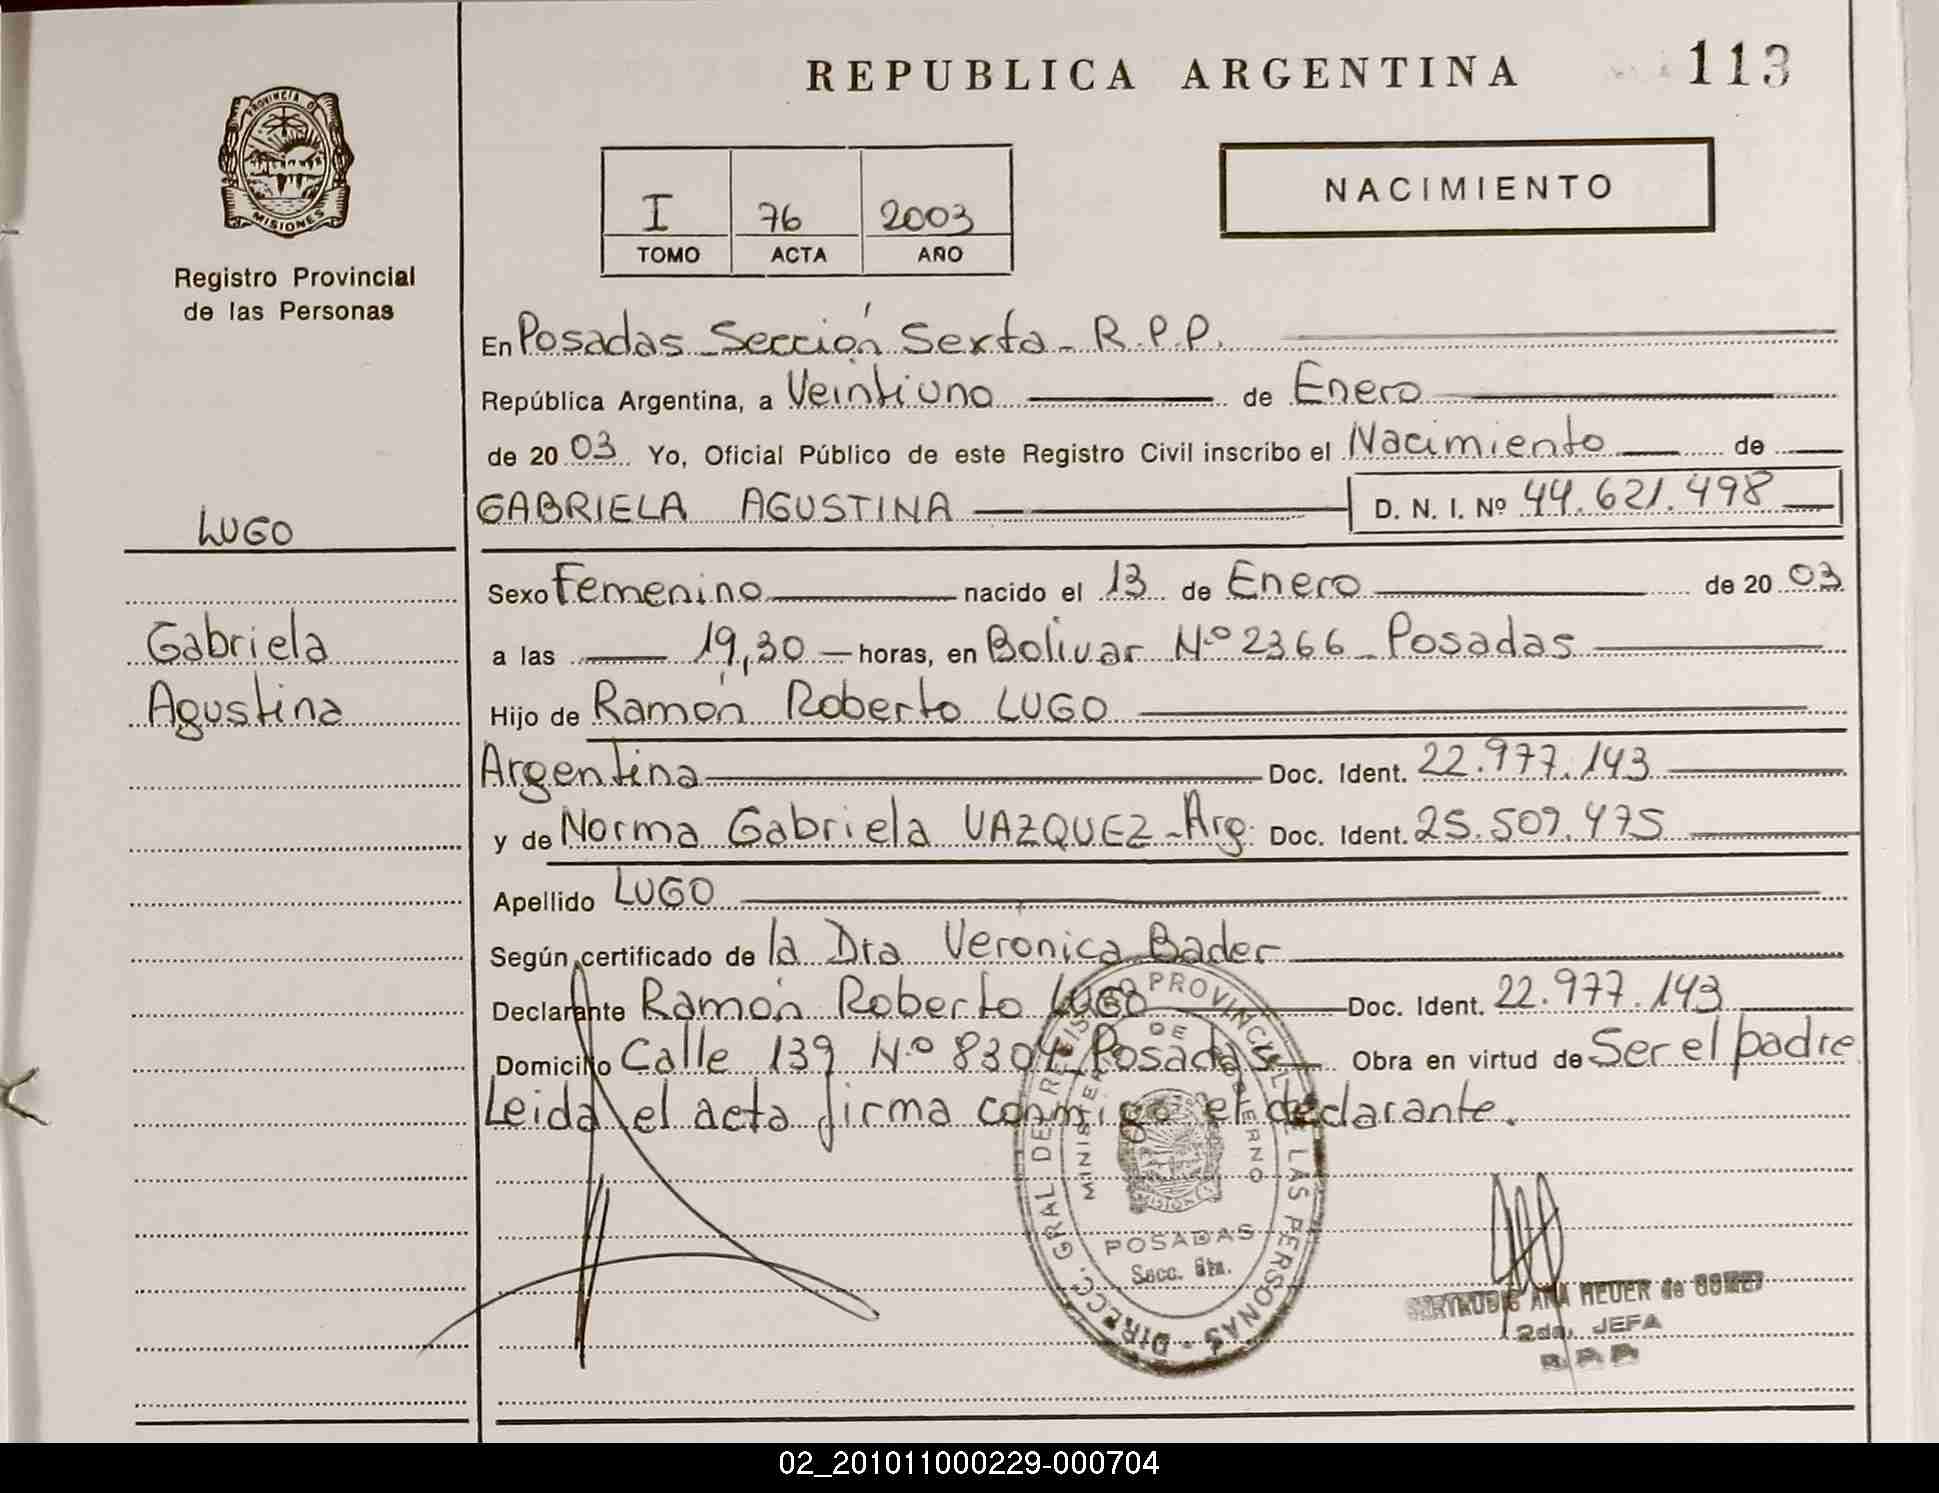 REPUBLICA ARGENTINA
113
PROVINCIA D
MISIONES
Registro Provincial
de las Personas
I 76 2003
TOMO ACTA AÑO
NACIMIENTO
En Posadas Sección Sexta - R.P.P.
República Argentina, a Veintiuno de Enero
de 20 03 Yo, Oficial Público de este Registro Civil inscribo el Nacimiento de
GABRIELA AGUSTINA D. N. I. Nº 44.621.498
LUGO
Gabriela
Agustina
Sexo Femenino nacido el 13 de Enero de 20 03
a las 19,30 horas, en Bolivar Nº 2366 - Posadas
Hijo de Ramón Roberto LUGO
Argentina Doc. Ident. 22.977.143
y de Norma Gabriela VAZQUEZ - Arg. Doc. Ident. 25.509.475
Apellido LUGO
Según certificado de la Dra Veronica Bader
Declarante Ramón Roberto LUGO Doc. Ident. 22.977.143
Domicilio Calle 139 Nº 8304 Posadas Obra en virtud de Ser el padre
Leida el acta firma conmigo el declarante.
DIRECC. GRAL DE REGISTRO PROVINCIAL DE LAS PERSONAS
MINISTERIO DE GOBIERNO
POSADAS
Secc. 6ta.
ANA HEUER de
2da. JEFA
R.P.P.
02_201011000229-000704